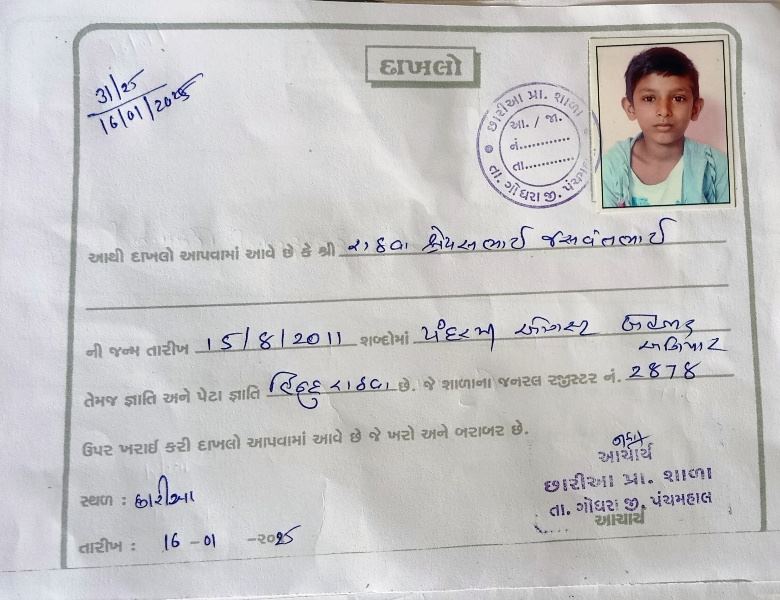 દાખલો
31/25
16/01/2025
છારીઆ પ્રા. શાળા
આ. / જા.
નં............
તા............
તા. ગોધરા જી. પંચમહાલ
આથી દાખલો આપવામાં આવે છે કે શ્રી રાઠવા શ્રેયસભાઈ જસવંતભાઈ
ની જન્મ તારીખ 15/8/2011 શબ્દોમાં પંદરમી ઓગસ્ટ બે હજાર
અગિયાર
તેમજ જ્ઞાતિ અને પેટા જ્ઞાતિ હિન્દુ રાઠવા છે. જે શાળાના જનરલ રજીસ્ટર નં. 2878
ઉપર ખરાઈ કરી દાખલો આપવામાં આવે છે જે ખરો અને બરાબર છે.
આચાર્ય
છારીઆ પ્રા. શાળા
તા. ગોધરા જી. પંચમહાલ
આચાર્ય
સ્થળ : છારીઆ
તારીખ : 16 - 01 - ૨૦25